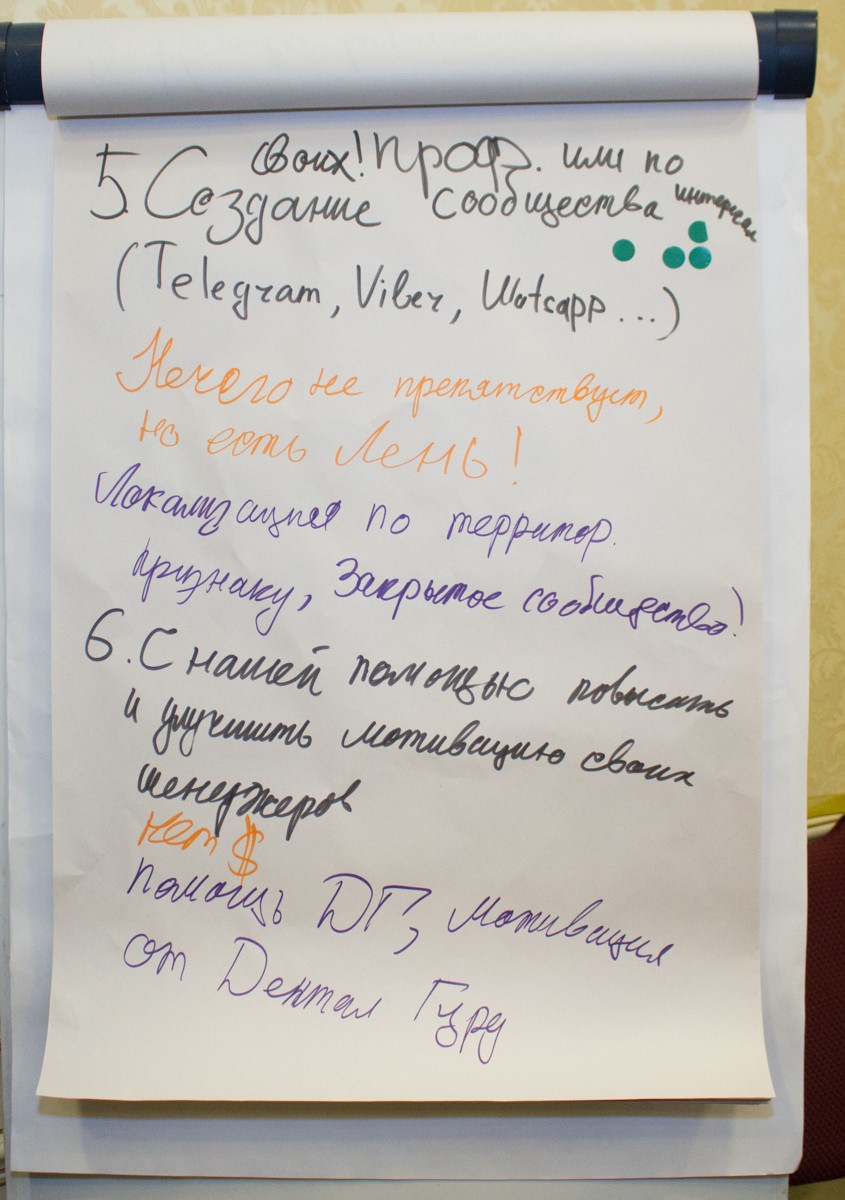 своих! проф. или по
5. Создание сообщества интересам
(Telegram, Viber, Watsapp...)
Нечего не препятствует,
но есть Лень!
Локализация по территор.
признаку, Закрытое сообщество!
6. С нашей помощью повысить
и улучшить мотивацию своих
менеджеров
нет $
помощь ДГ, мотивация
от Дентал Гуру